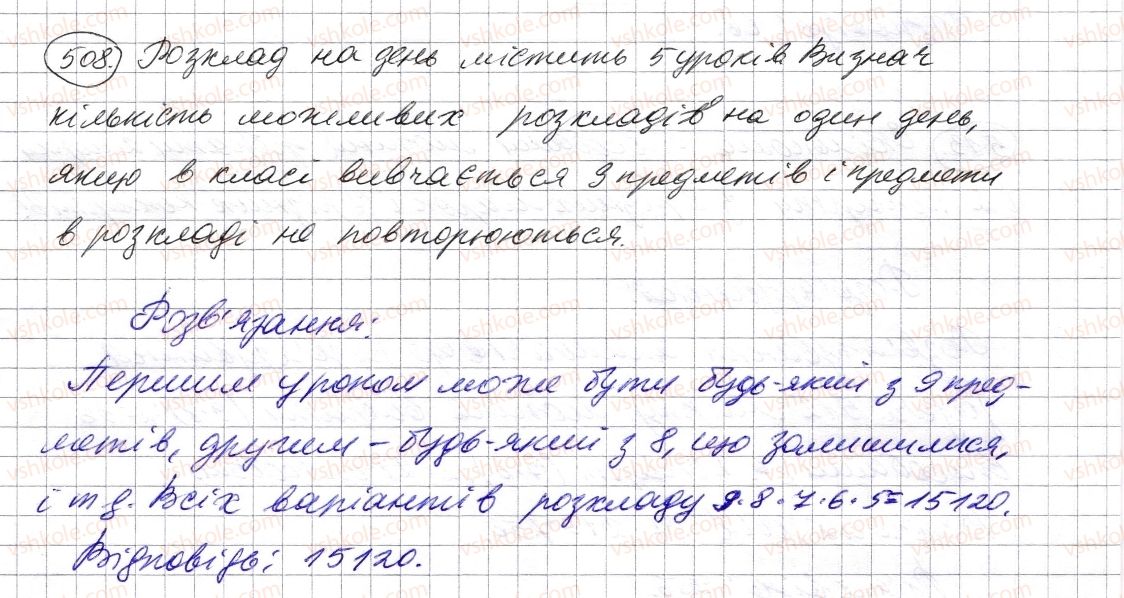 508. Розклад на день містить 5 уроків Визнач
кількість можливих розкладів на один день,
якщо в класі вивчається 9 предметів і предмети
в розкладі не повторюються.
Розв'язання:
Першим уроком може бути будь-який з 9 пред-
метів, другим – будь-який з 8, що залишилися,
і т д. Всіх варіантів розкладу 9·8·7·6·5=15120.
Відповідь: 15120.